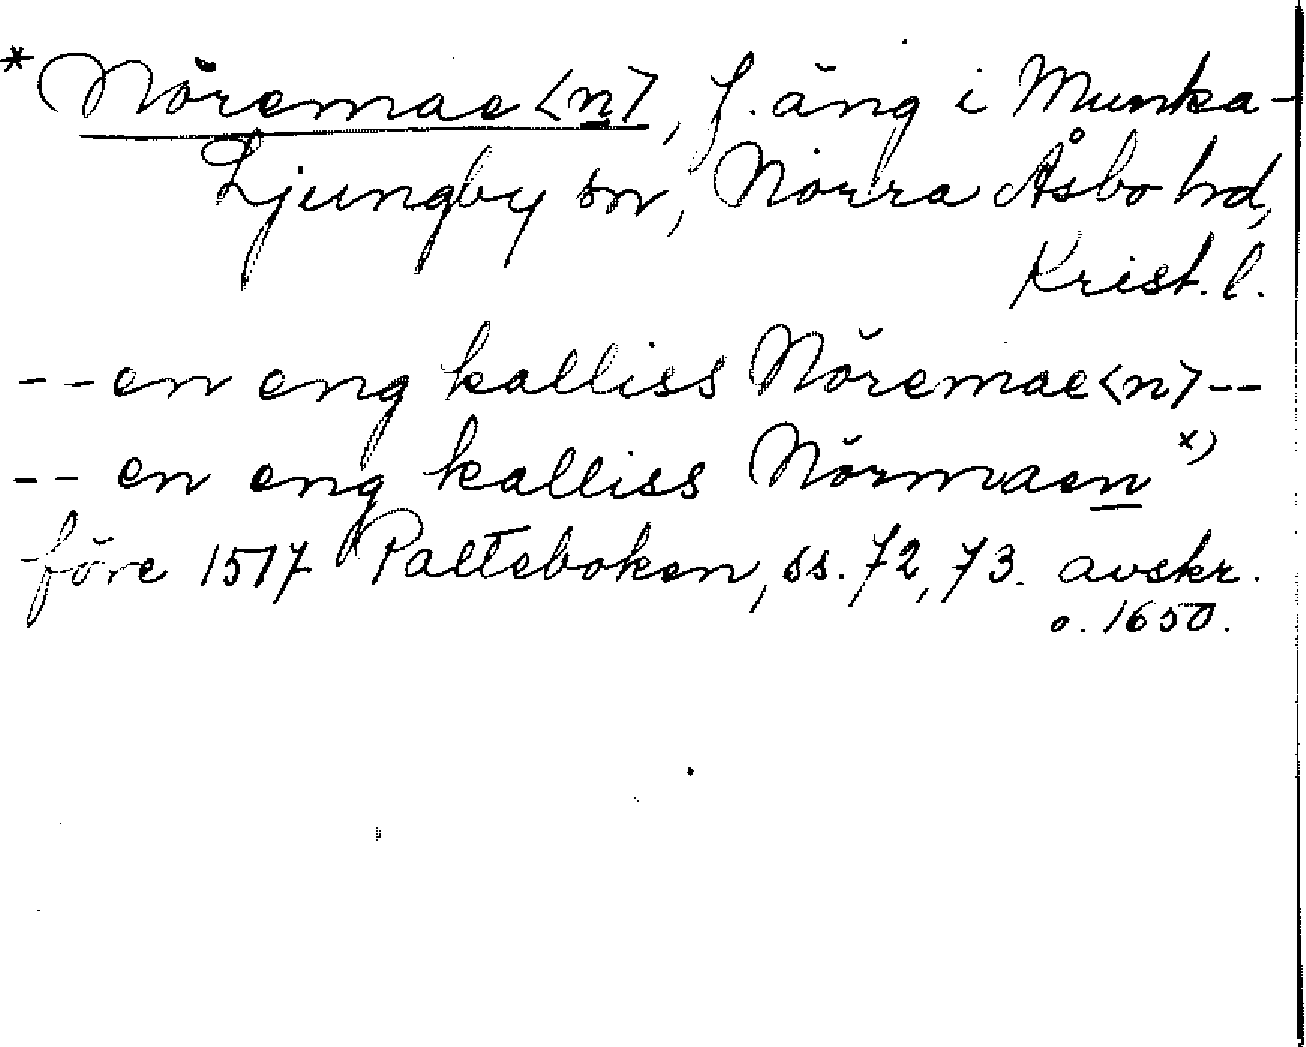 *Nöremae<n>, f. äng i Munka-
Ljungby sn, Norra Åsbo hd,
Krist. l.
-- en eng kalliss Nöremae<n> --
-- en eng kalliss Nörmaen x)
före 1517 Palteboken, ss. 72, 73. avskr.
o. 1650.